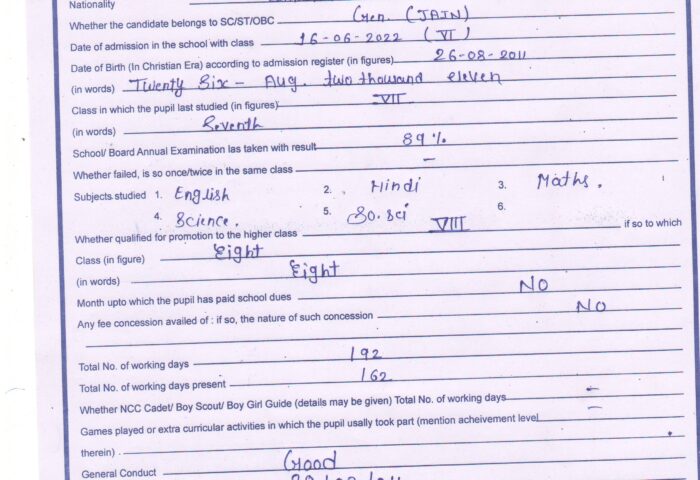 Nationality
Whether the candidate belongs to SC/ST/OBC Gen. (JAIN)
Date of admission in the school with class 16-06-2022 (VI)
Date of Birth (In Christian Era) according to admission register (in figures) 26-08-2011
(in words) Twenty Six - Aug. two thousand eleven
Class in which the pupil last studied (in figures) VII
(in words) Seventh
School/ Board Annual Examination las taken with result 89%
Whether failed, is so once/twice in the same class -
Subjects studied 1. English 2. Hindi 3. Maths.
4. Science. 5. So. Sci 6.
Whether qualified for promotion to the higher class VIII if so to which
Class (in figure) Eight
(in words) Eight
Month upto which the pupil has paid school dues NO
Any fee concession availed of : if so, the nature of such concession NO
Total No. of working days 192
Total No. of working days present 162
Whether NCC Cadet/ Boy Scout/ Boy Girl Guide (details may be given) Total No. of working days -
Games played or extra curricular activities in which the pupil usally took part (mention acheivement level -
therein) .
General Conduct Good